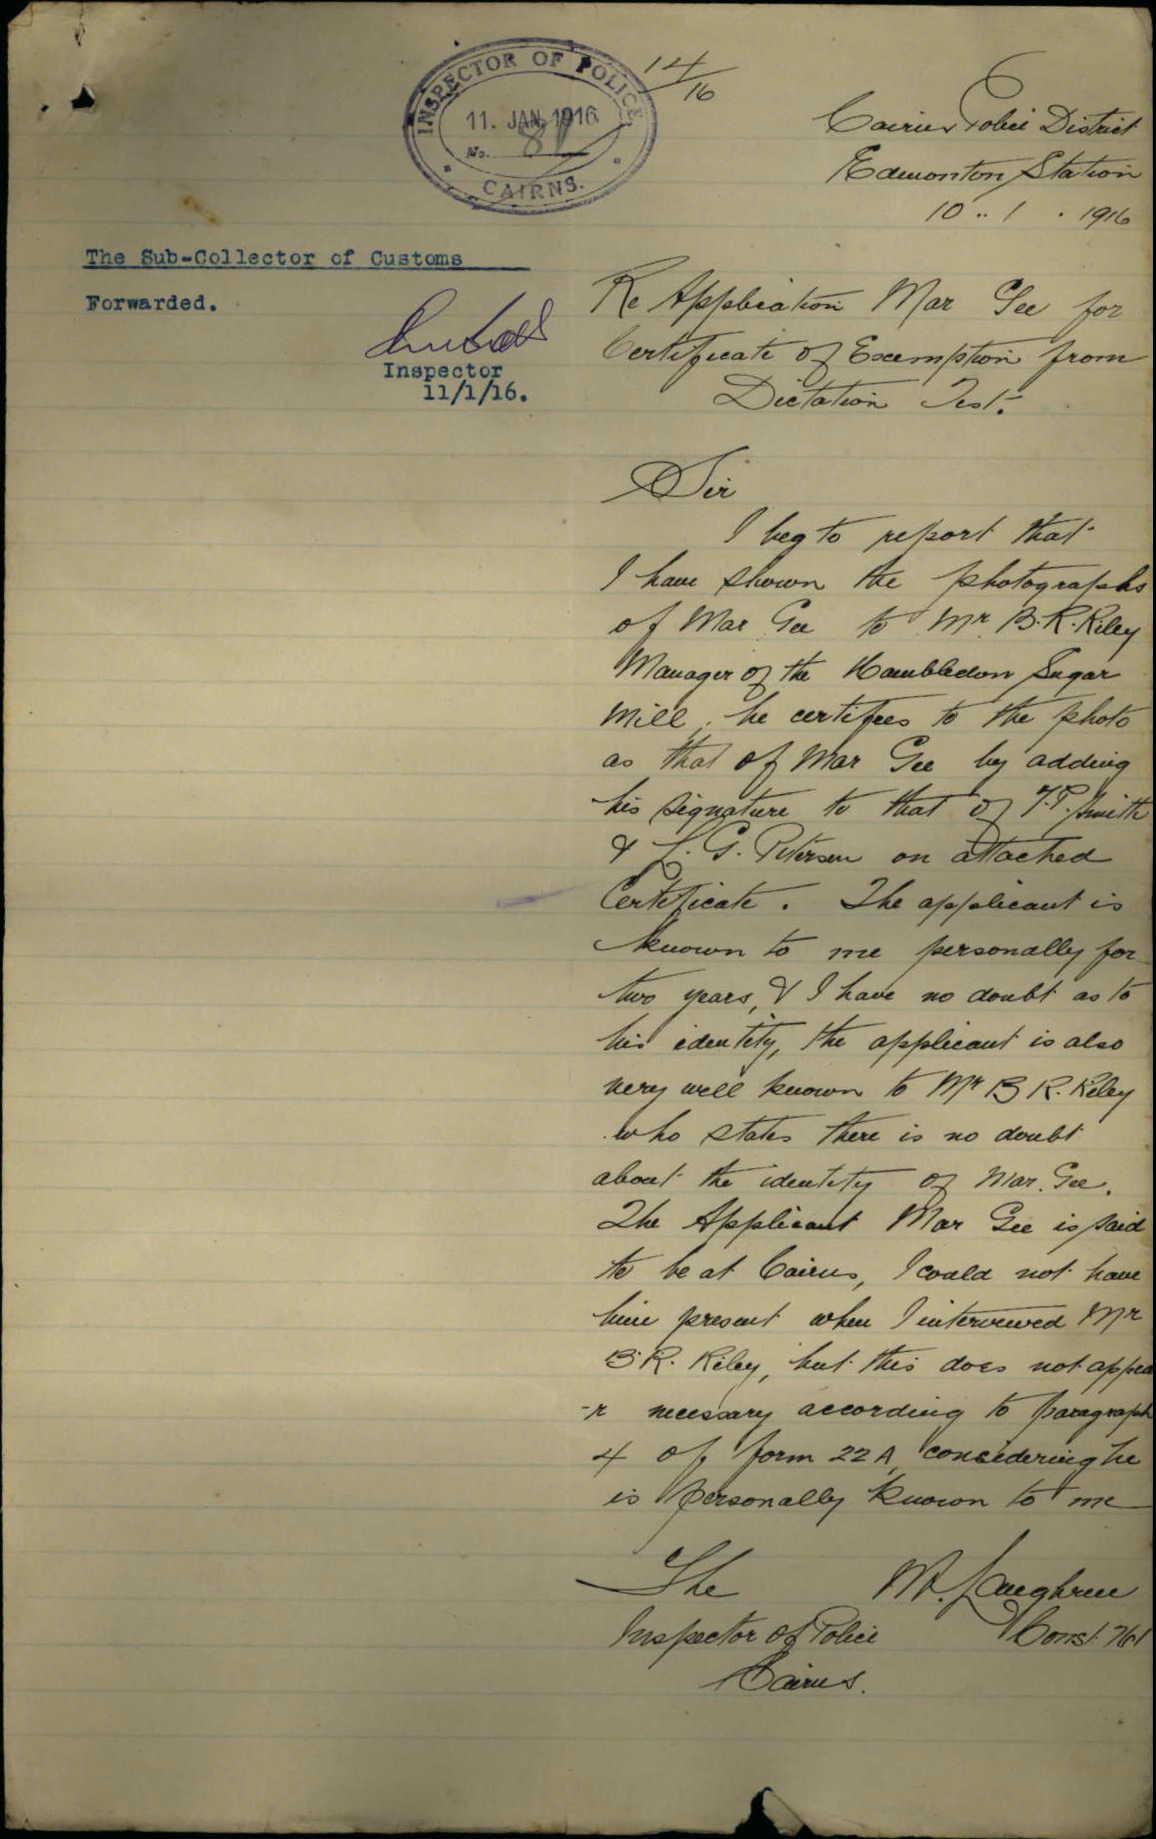 INSPECTOR OF POLICE
11. JAN. 1916
No. 81
CAIRNS.
14/16
Cairns Police District
Edmonton Station
10..1.1916
The Sub-Collector of Customs
Forwarded.
Inspector
11/1/16.
Re Application Mar Gee for
Certificate of Exemption from
Dictation Test.
Sir
I beg to report that
I have shown the photographs
of Mar Gee to Mr. B.R. Riley
Manager of the Hambledon Sugar
Mill, he certifees to the photo
as that of Mar Gee by adding
his signature to that of T.T. Smith
& L.G. Petersen on attached
Certificate. The applicant is
known to me personally for
two years, & I have no doubt as to
his identity, the applicant is also
very well known to Mr B R. Riley
who states there is no doubt
about the identity of Mar. Gee.
The Applicant Mar Gee is said
to be at Cairns, I could not have
him present when I interviewed Mr
B.R. Riley, but this does not appea
-r necessary according to paragraph
4 of form 22A, considering he
is personally known to me
The
Inspector of Police
Cairns.
Const. 761